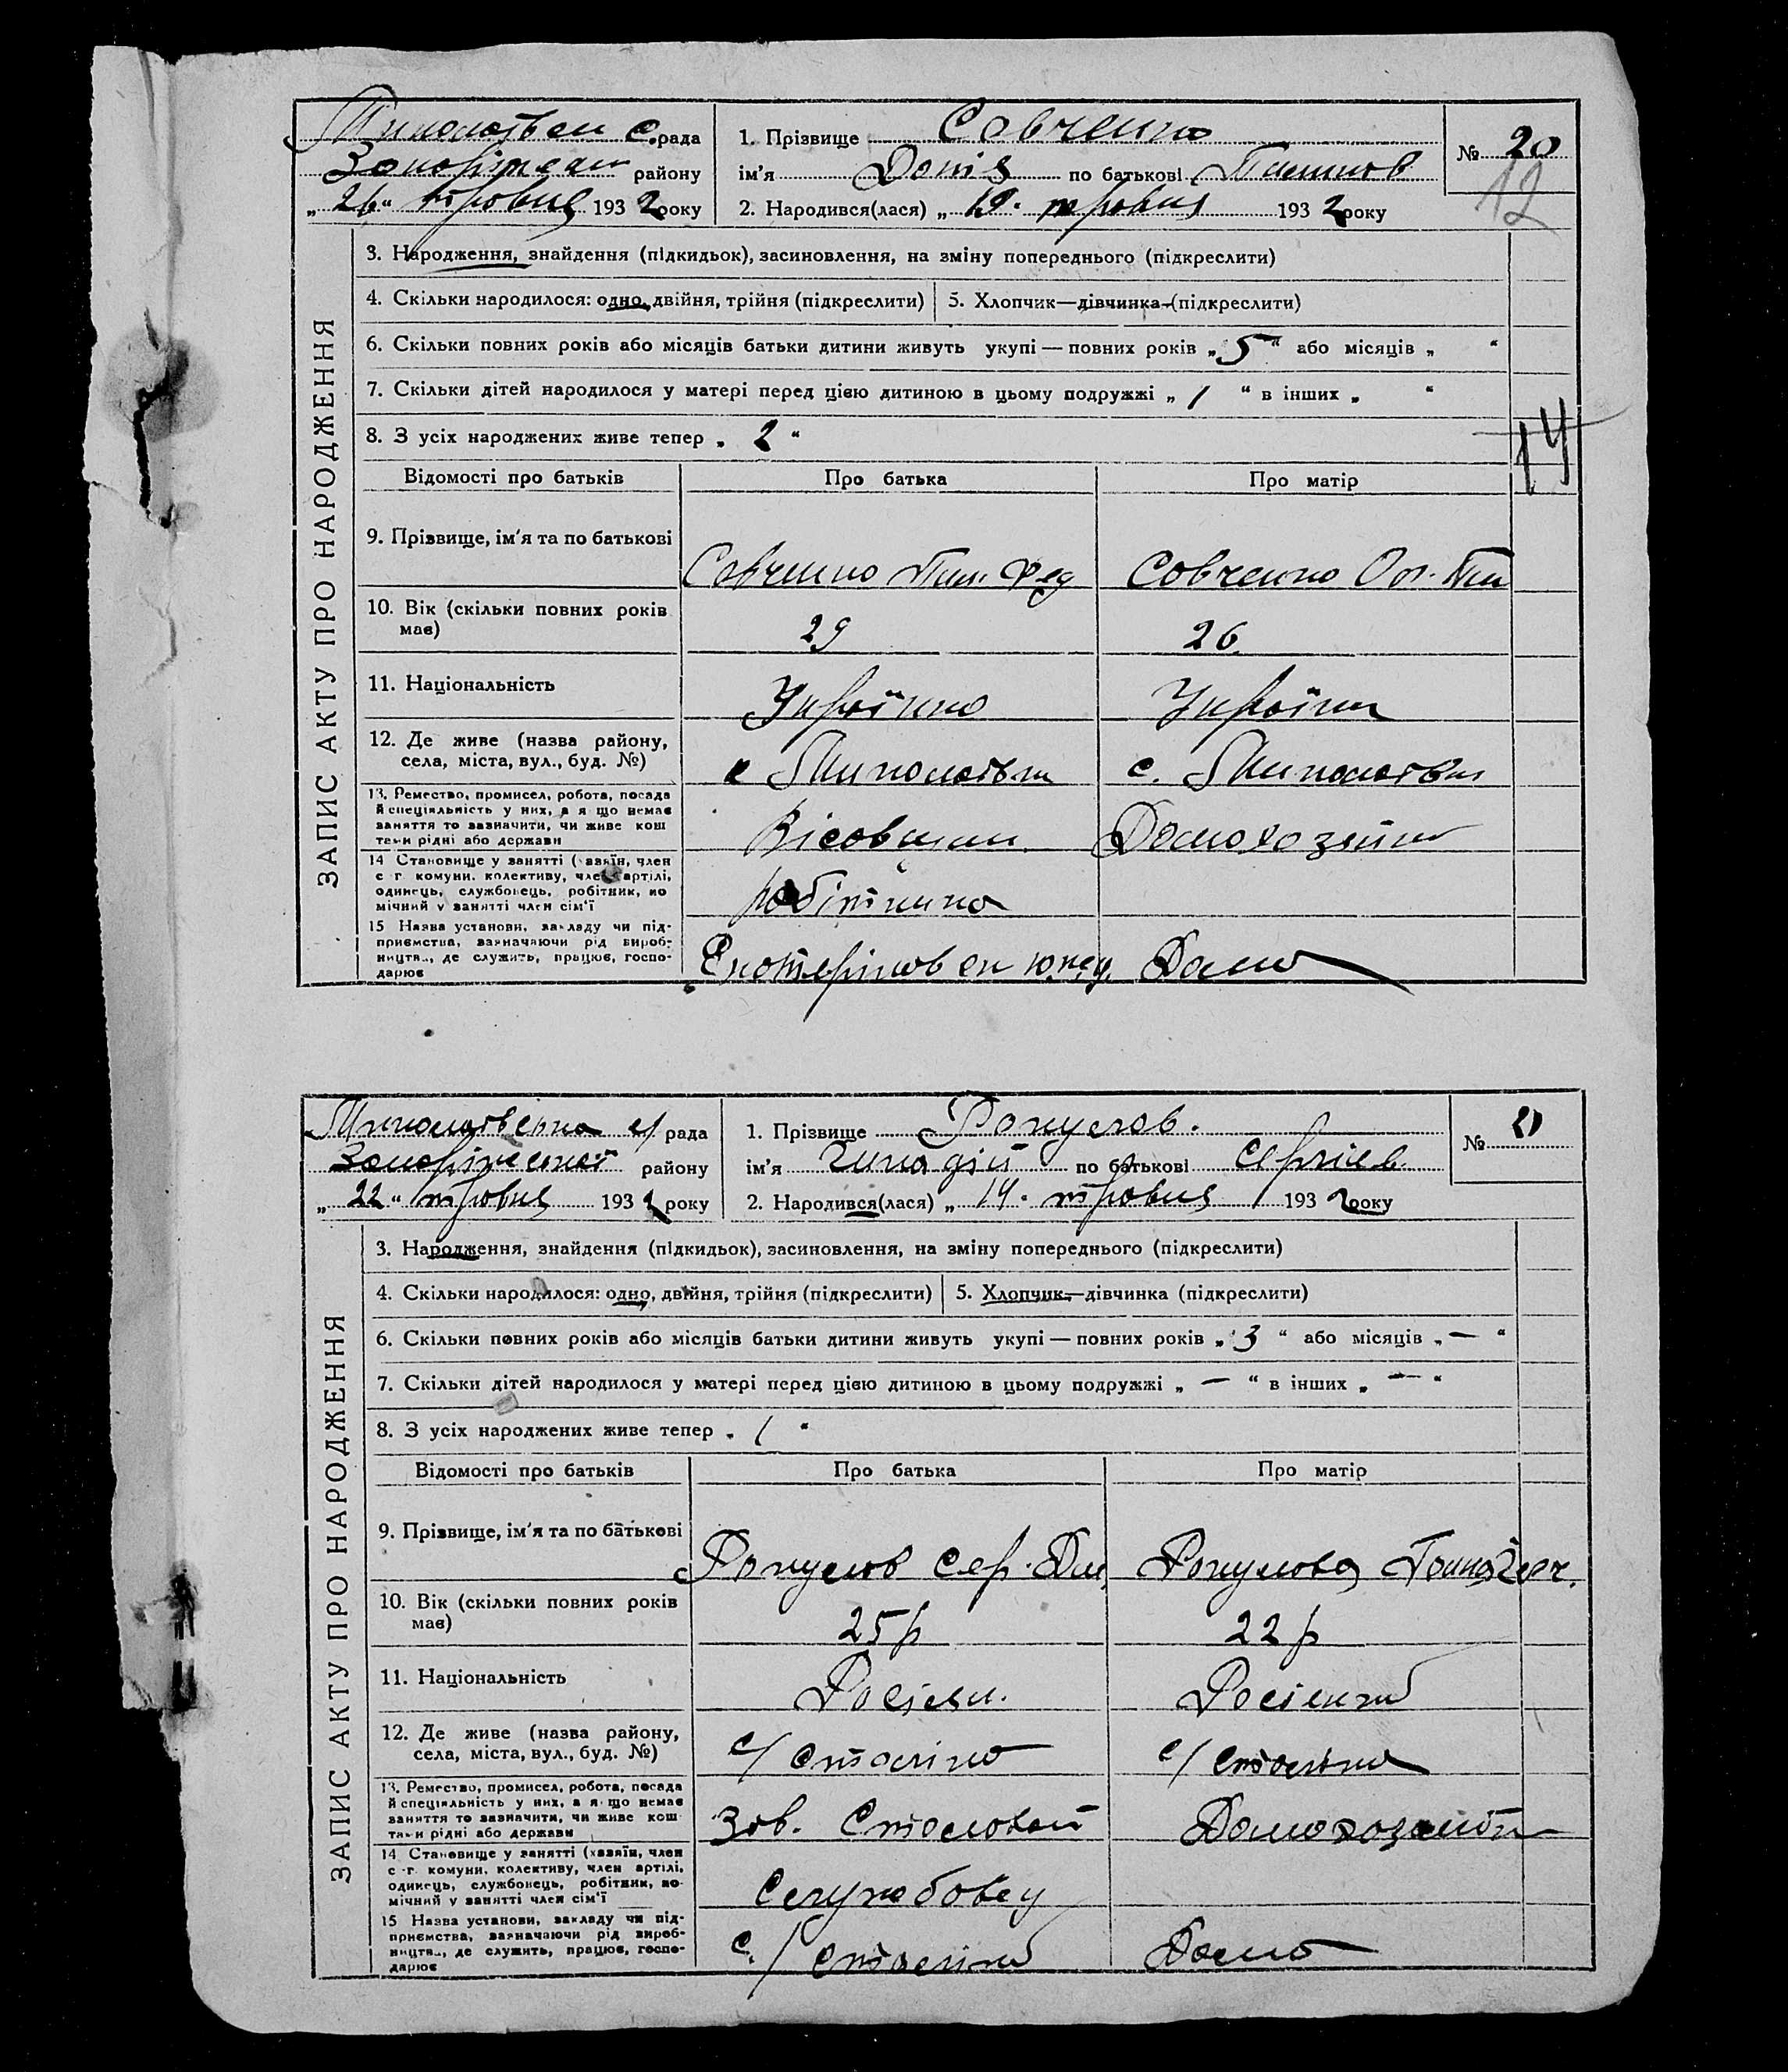 рада
1. Прізвище Савченко
№ 20
району
ім'я по батькові
12
„ 26 “ травня 1932 року
2. Народився(лася) „ 19 “ травня 1932 року
ЗАПИС АКТУ ПРО НАРОДЖЕННЯ
3. Народження, знайдення (підкидьок), засиновлення, на зміну попереднього (підкреслити)
4. Скільки народилося: одно, двійня, трійня (підкреслити)
5. Хлопчик—дівчинка—(підкреслити)
6. Скільки повних років або місяців батьки дитини живуть укупі — повних років „ 5 “ або місяців „ “
7. Скільки дітей народилося у матері перед цією дитиною в цьому подружжі „ 1 “ в інших „ “
8. З усіх народжених живе тепер „ 2 “
14
Відомості про батьків
Про батька
Про матір
9. Прізвище, ім'я та по батькові
Савченко Пил. Фед
Савченко
10. Вік (скільки повних років
має)
29
26
11. Національність
Україно
Україн
12. Де живе (назва району,
села, міста, вул., буд. №)
с
с.
13. Ремество, промисел, робота, посада
й спеціяльність у них, а я що немає
заняття то зазначити, чи живе кош
тами рідні або держави
Вісовщик
Домохозяйка
14 Становище у занятті (хазяїн, член
с.-г. комуни, колективу, член артілі,
одинець, службовець, робітник, по
мічний у занятті член сім'ї
робітник
15 Назва установи, закладу чи під-
приємства, зазначаючи рід вироб-
ництв., де служить, працює, госпо-
дарює
Дома
рада
1. Прізвище
№ 21
Запоріжської району
ім'я Генадій по батькові Сергіев.
„ 22 “ травня 1932 року
2. Народився(лася) „ 14 “ травня 1932 року
ЗАПИС АКТУ ПРО НАРОДЖЕННЯ
3. Народження, знайдення (підкидьок), засиновлення, на зміну попереднього (підкреслити)
4. Скільки народилося: одно, двійня, трійня (підкреслити)
5. Хлопчик—дівчинка (підкреслити)
6. Скільки повних років або місяців батьки дитини живуть укупі — повних років „ 3 “ або місяців „ — “
7. Скільки дітей народилося у матері перед цією дитиною в цьому подружжі „ — “ в інших „ — “
8. З усіх народжених живе тепер „ 1 “
Відомості про батьків
Про батька
Про матір
9. Прізвище, ім'я та по батькові
Сер.
10. Вік (скільки повних років
має)
25 р
22 р
11. Національність
Росіян.
Росіянка
12. Де живе (назва району,
села, міста, вул., буд. №)
с/ Сталіно
с/ Сталіна
13. Ремество, промисел, робота, посада
й спеціяльність у них, а я що немає
заняття то зазначити, чи живе кош
тами рідні або держави
Зав. Столовой
Домохозяйка
14 Становище у занятті (хазяїн, член
с.-г. комуни, колективу, член артілі,
одинець, службовець, робітник, по-
мічний у занятті член сім'ї
Служабовец
15 Назва установи, закладу чи під-
приємства, зазначаючи рід вироб-
ництв., де служить, працює, госпо-
дарює
с/ Сталіно
Дома